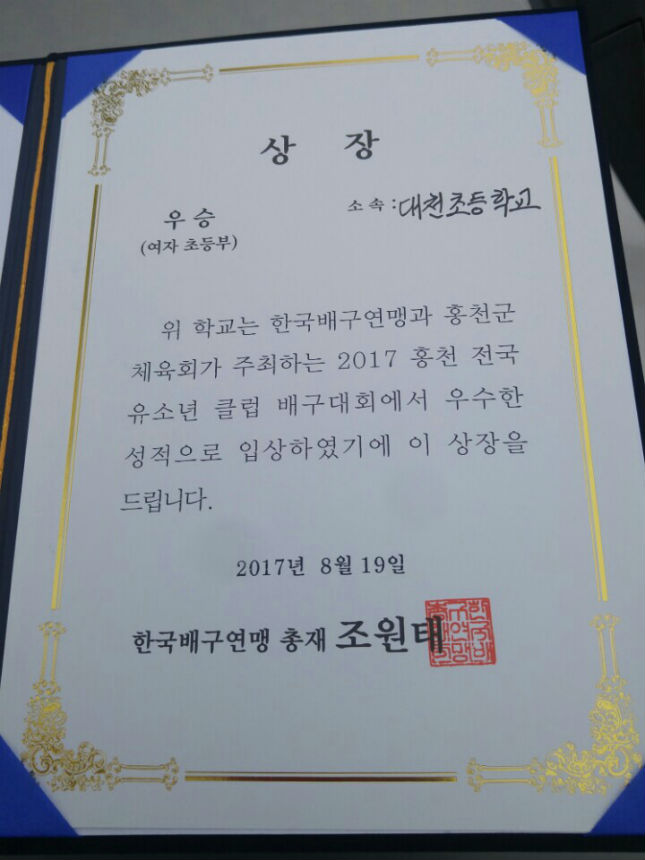 상 장
소 속 : 대천초등학교
우 승
(여자 초등부)
위 학교는 한국배구연맹과 홍천군
체육회가 주최하는 2017 홍천 전국
유소년 클럽 배구대회에서 우수한
성적으로 입상하였기에 이 상장을
드립니다.
2017년 8월 19일
한국배구연맹 총재 조원태